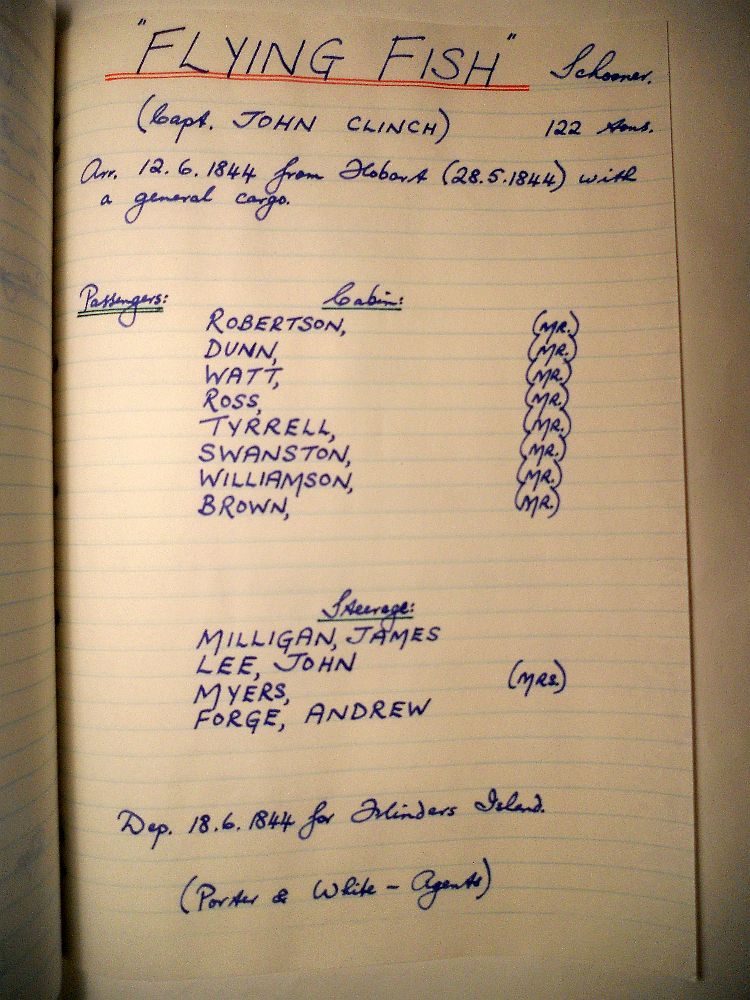 "FLYING FISH" Schooner.
(Capt. JOHN CLINCH) 122 tons.
Arr. 12.6.1844 from Hobart (28.5.1844) with
a general cargo.
Passengers: Cabin:
ROBERTSON, (MR.)
DUNN, (MR.)
WATT, (MR.)
ROSS, (MR.)
TYRRELL, (MR.)
SWANSTON, (MR.)
WILLIAMSON, (MR.)
BROWN, (MR.)
Steerage:
MILLIGAN, JAMES
LEE, JOHN
MYERS, (MRS.)
FORGE, ANDREW
Dep. 18.6.1844 for Flinders Island.
(Porter & White - Agents)